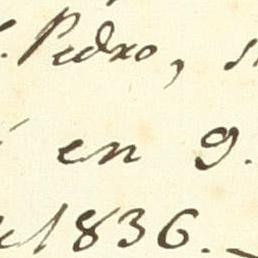 Pedro,
en 9.
1836.